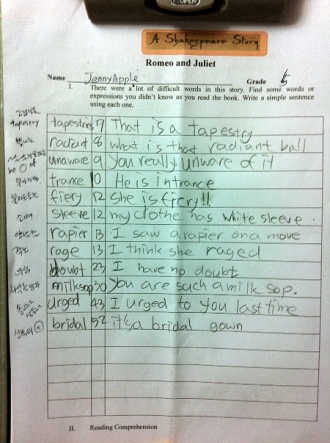 OPEN
A Shakespeare Story
Romeo and Juliet
Name JennyApple Grade 5
I. There were a lot of difficult words in this story. Find some words or
expressions you didn't know as you read the book. Write a simple sentence
using each one.
tapestries 7 That is a tapestry
radiant 8 what is that radiant ball
unaware 9 you really unware of it
trance 10 He is in trance
fiery 12 she is fiery!!
sleeve 12 my clothe has white sleeve.
rapier 13 I saw a rapier on a move
rage 13 I think she raged
doubt 23 I have no doubt
milksop 30 you are such a milk sop.
urged 43 I urged to you last time
bridal 52 it's a bridal gown
II. Reading Comprehension